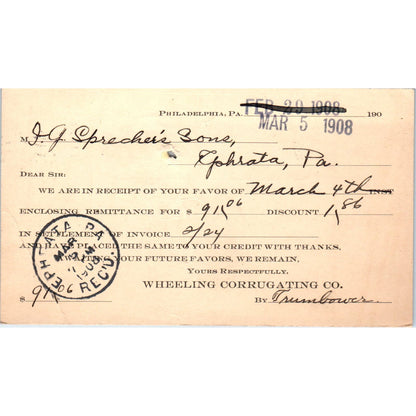 PHILADELPHIA, PA. FEB 29 1908 190
MAR 5 1908
M J. G. Sprecher's Sons,
Ephrata, Pa.
DEAR SIR:
WE ARE IN RECEIPT OF YOUR FAVOR OF March 4th INST
ENCLOSING REMITTANCE FOR $ 91.06 DISCOUNT 1.86
IN SETTLEMENT OF INVOICE 2/24
AND HAVE PLACED THE SAME TO YOUR CREDIT WITH THANKS.
YOUR FUTURE FAVORS, WE REMAIN,
YOURS RESPECTFULLY,
WHEELING CORRUGATING CO.
$ 91.06 BY Trumbower
EPHRATA PA
MAR
1908
REC'D.